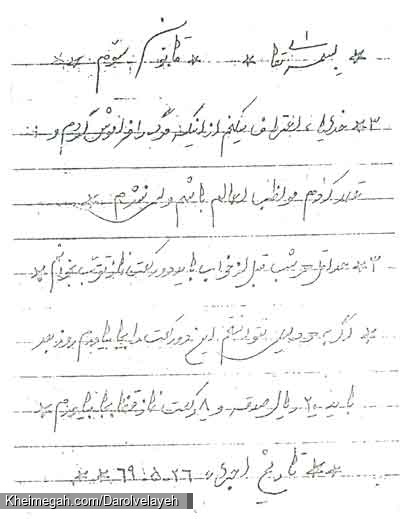 * بسمه تعالی * * قانون سوّم **
۳* خدایا، اعتراف میکنم از اینکه مرگ را فراموش کردم و
تعهد کردم مواظب اعمالم باشم ولی نشدم *
۳* حداقل هر شب قبل از خواب باید دو رکعت نماز تقرب بخوانم *
* اگر به هر دلیلی نتوانستم این دو رکعت را بجا بیاورم روز بعد
باید ۲۰ ریال صدقه و ۸ رکعت نماز قضا بجا بیاورم *
** تاریخ اجراء ۶۹.۵.۲۶ **
Kheimegah.com/Darolvelayeh